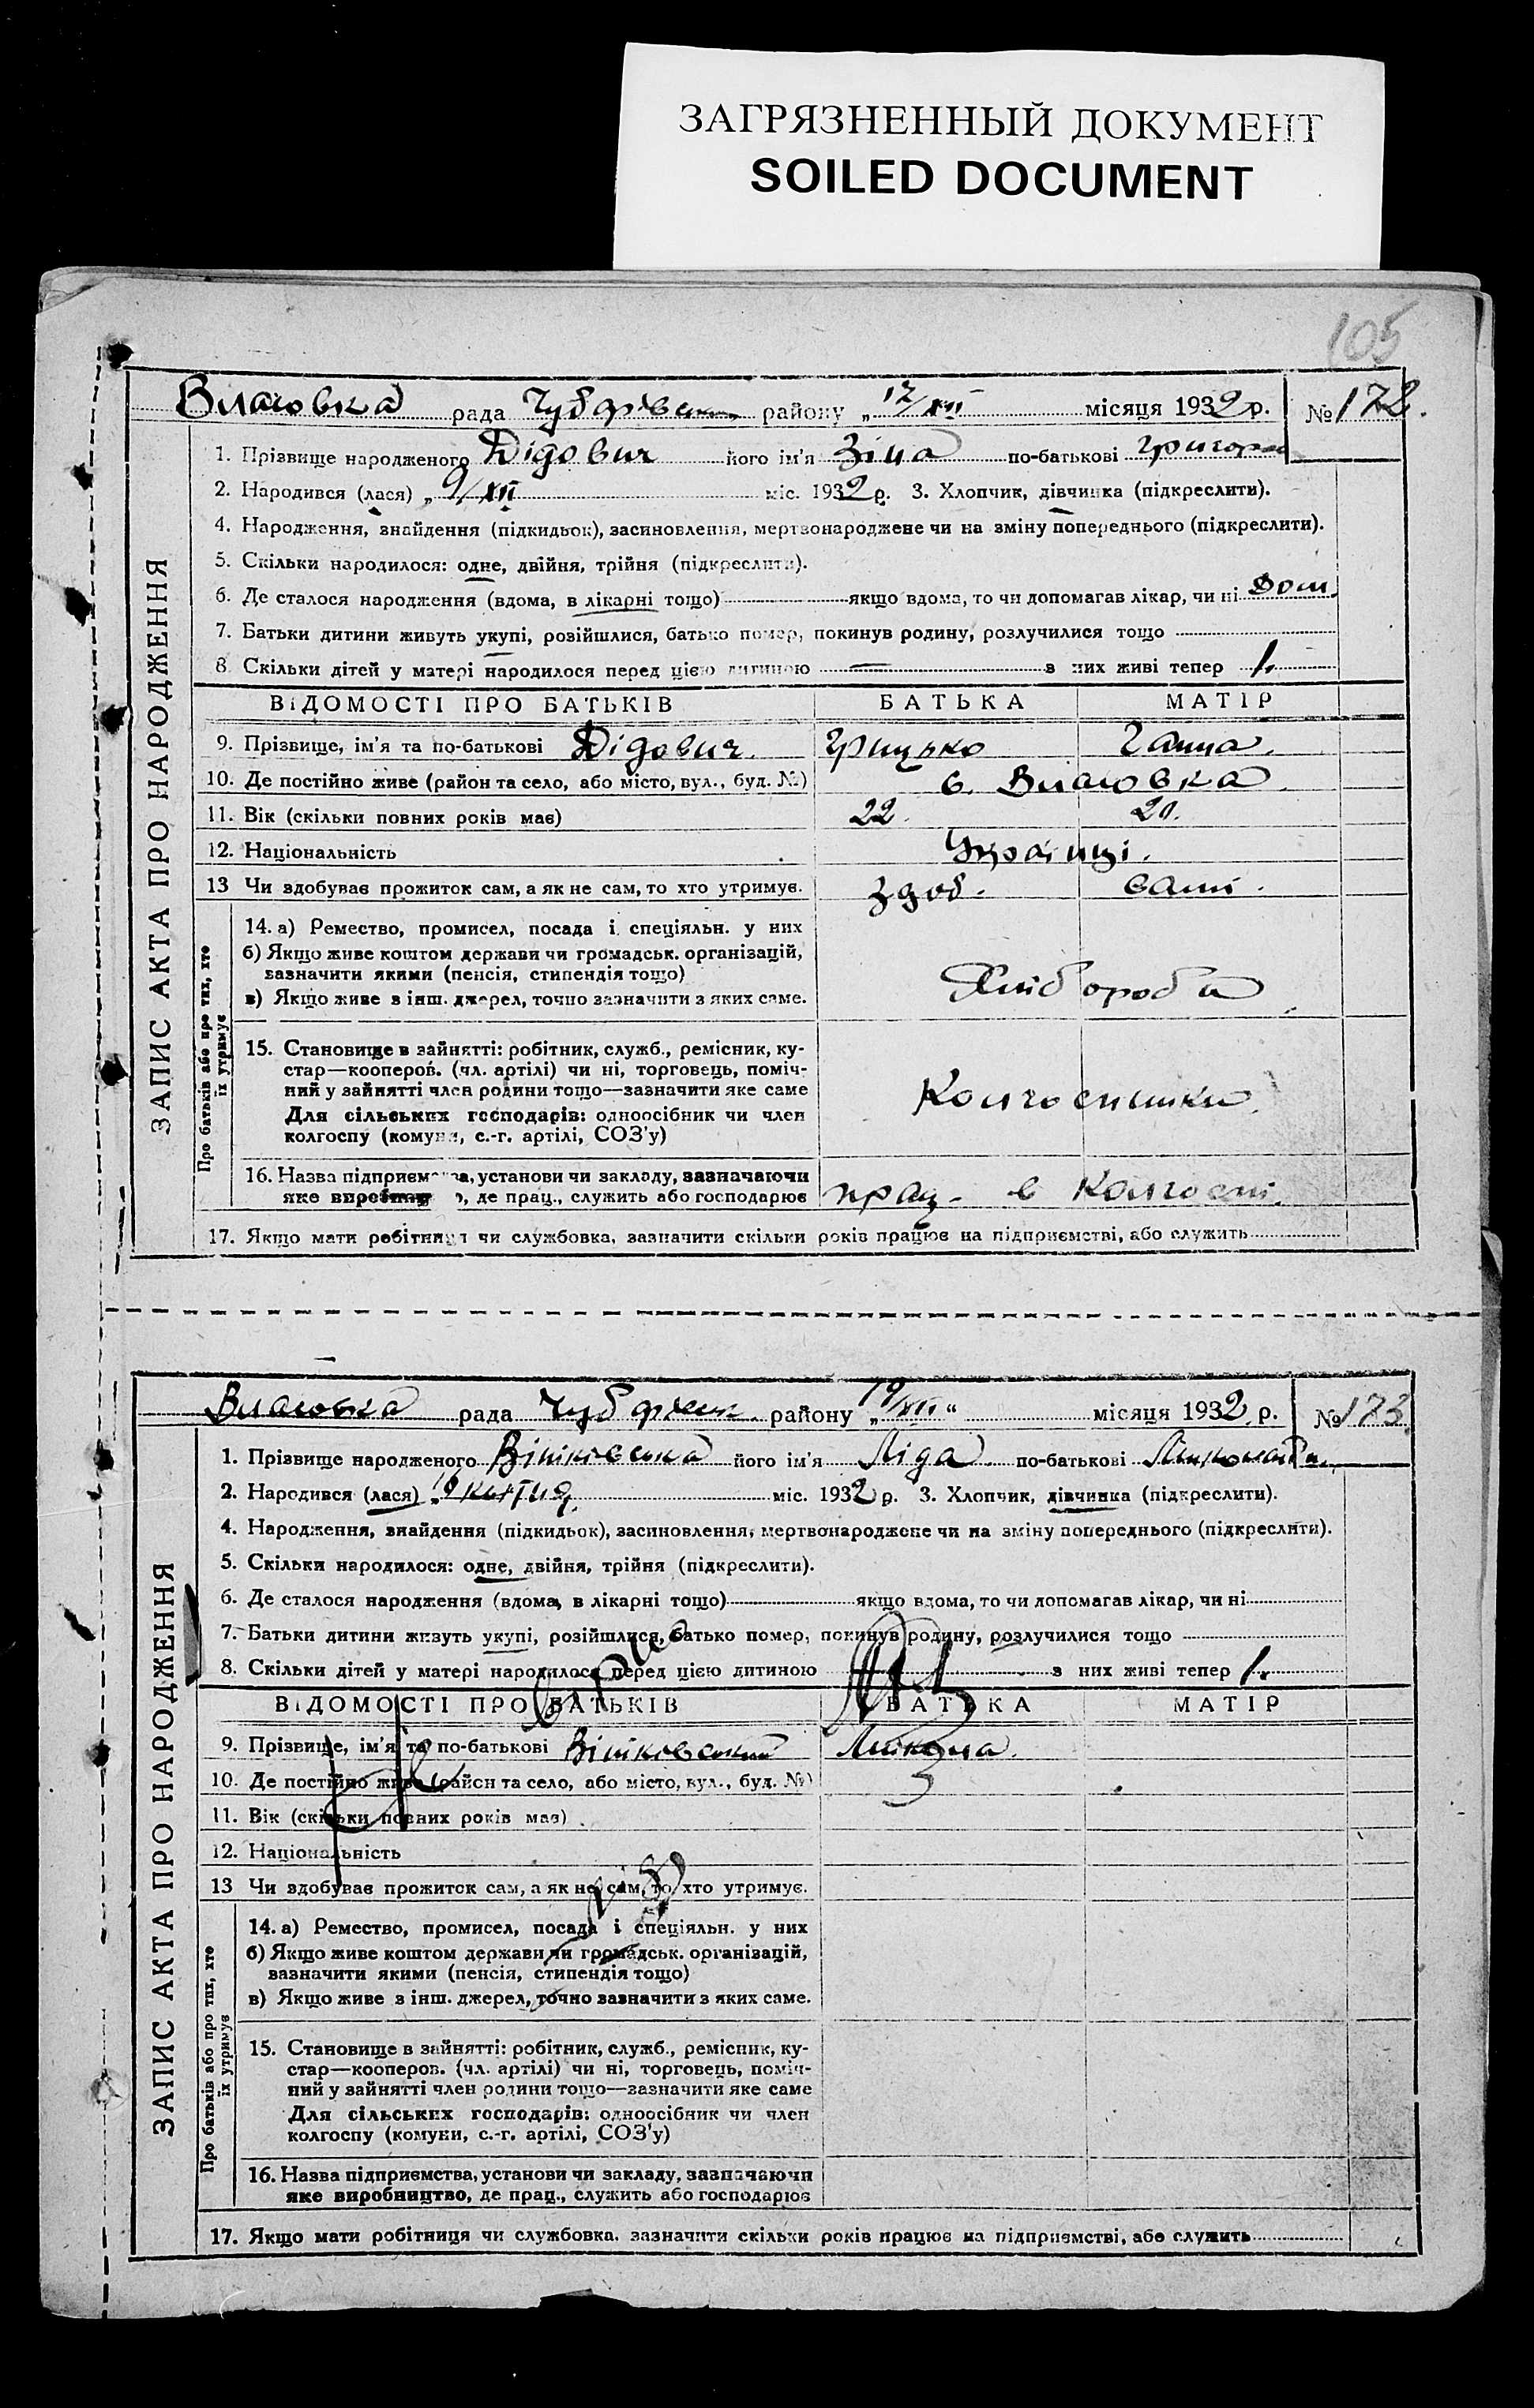 ЗАГРЯЗНЕННЫЙ ДОКУМЕНТ
SOILED DOCUMENT
105
ЗАПИС АКТА ПРО НАРОДЖЕННЯ
Власовка рада району „12/XII місяця 1932 р. № 172.
1. Прізвище народженого Дідович його ім'я Зіна по-батькові
2. Народився (лася) „9/XII міс. 1932 р. 3. Хлопчик, дівчинка (підкреслити).
4. Народження, знайдення (підкидьок), засиновлення, мертвонароджене чи на зміну попереднього (підкреслити).
5. Скільки народилося: одне, двійня, трійня (підкреслити).
6. Де сталося народження (вдома, в лікарні тощо) якщо вдома, то чи допомагав лікар, чи ні
7. Батьки дитини живуть укупі, розійшлися, батько помер, покинув родину, розлучилися тощо
8. Скільки дітей у матері народилося перед цією дитиною — з них живі тепер 1.
ВІДОМОСТІ ПРО БАТЬКІВ БАТЬКА МАТІР
9. Прізвище, ім'я та по-батькові Дідович. Грицько Ганна.
10. Де постійно живе (район та село, або місто, вул., буд. №) с. Власовка.
11. Вік (скільки повних років має) 22. 20.
12. Національність Українці.
13 Чи здобуває прожиток сам, а як не сам, то хто утримує. Здоб. самі.
Про батьків або про тих, хто їх утримує
14. а) Ремество, промисел, посада і спеціяльн. у них
б) Якщо живе коштом держави чи громадськ. організацій,
зазначити якими (пенсія, стипендія тощо)
в) Якщо живе з інш. джерел, точно зазначити з яких саме.
Хлібороби
15. Становище в зайнятті: робітник, служб., ремісник, ку-
стар—кооперов. (чл. артілі) чи ні, торговець, поміч-
ний у зайнятті член родини тощо—зазначити яке саме
Для сільських господарів: одноосібник чи член
колгоспу (комуни, с.-г. артілі, СОЗ'у)
Колгоспники.
16. Назва підприємства, установи чи закладу, зазначаючи
яке виробництво, де прац., служить або господарює прац. в колгоспі.
17. Якщо мати робітниця чи службовка, зазначити скільки років працює на підприємстві, або служить
ЗАПИС АКТА ПРО НАРОДЖЕННЯ
Власовка рада району „19/XII“ місяця 1932 р. № 173
1. Прізвище народженого його ім'я Ліда по-батькові
2. Народився (лася) міс. 1932 р. 3. Хлопчик, дівчинка (підкреслити).
4. Народження, знайдення (підкидьок), засиновлення, мертвонароджене чи на зміну попереднього (підкреслити).
5. Скільки народилося: одне, двійня, трійня (підкреслити).
6. Де сталося народження (вдома, в лікарні тощо) якщо вдома, то чи допомагав лікар, чи ні
7. Батьки дитини живуть укупі, розійшлися, батько помер, покинув родину, розлучилися тощо
8. Скільки дітей у матері народилося перед цією дитиною з них живі тепер 1.
ВІДОМОСТІ ПРО БАТЬКІВ БАТЬКА МАТІР
9. Прізвище, ім'я та по-батькові
10. Де постійно живе (район та село, або місто, вул., буд. №)
11. Вік (скільки повних років має)
12. Національність
13 Чи здобуває прожиток сам, а як не сам, то хто утримує.
Про батьків або про тих, хто їх утримує
14. а) Ремество, промисел, посада і спеціяльн. у них
б) Якщо живе коштом держави чи громадськ. організацій,
зазначити якими (пенсія, стипендія тощо)
в) Якщо живе з інш. джерел, точно зазначити з яких саме.
15. Становище в зайнятті: робітник, служб., ремісник, ку-
стар—кооперов. (чл. артілі) чи ні, торговець, поміч-
ний у зайнятті член родини тощо—зазначити яке саме
Для сільських господарів: одноосібник чи член
колгоспу (комуни, с.-г. артілі, СОЗ'у)
16. Назва підприємства, установи чи закладу, зазначаючи
яке виробництво, де прац., служить або господарює
17. Якщо мати робітниця чи службовка, зазначити скільки років працює на підприємстві, або служить